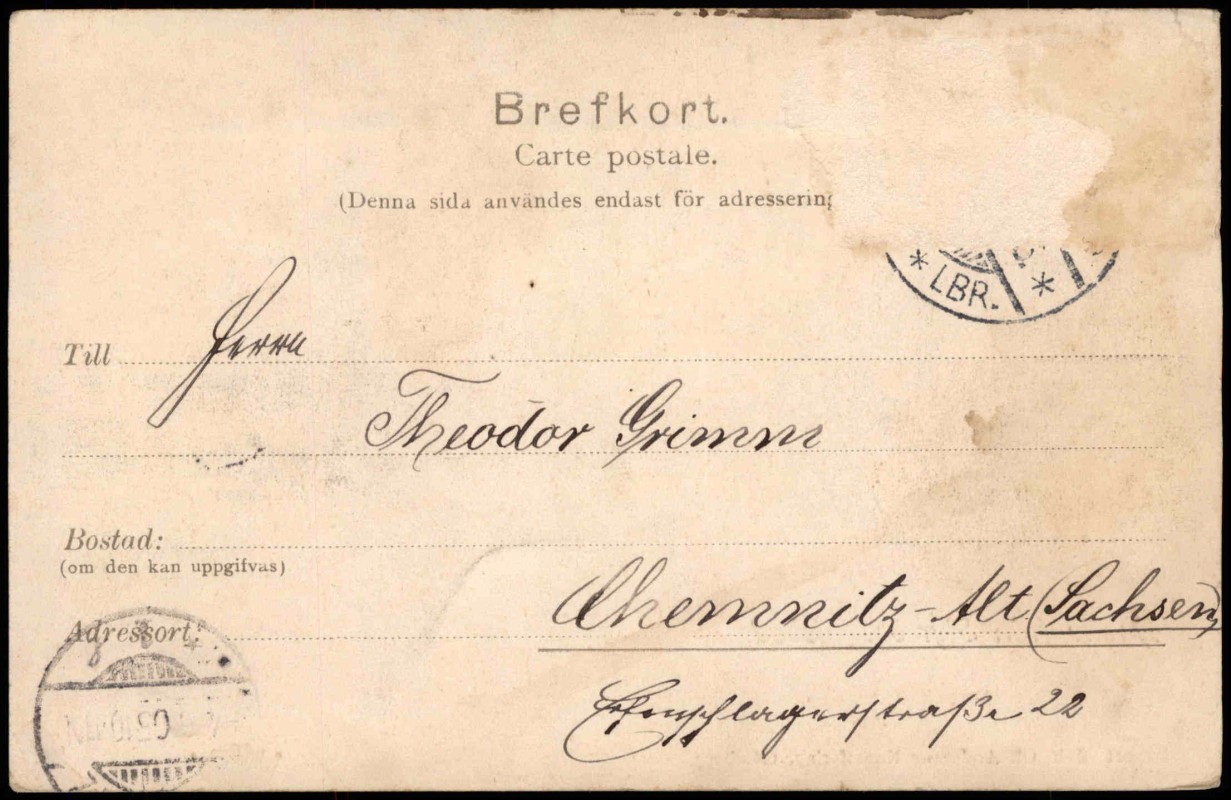 Brefkort.
Carte postale.
(Denna sida användes endast för adressering
* LBR. *
Till Herrn
Theodor Grimm
Bostad:
(om den kan uppgifvas)
Chemnitz-Alt (Sachsen)
Adressort:
22